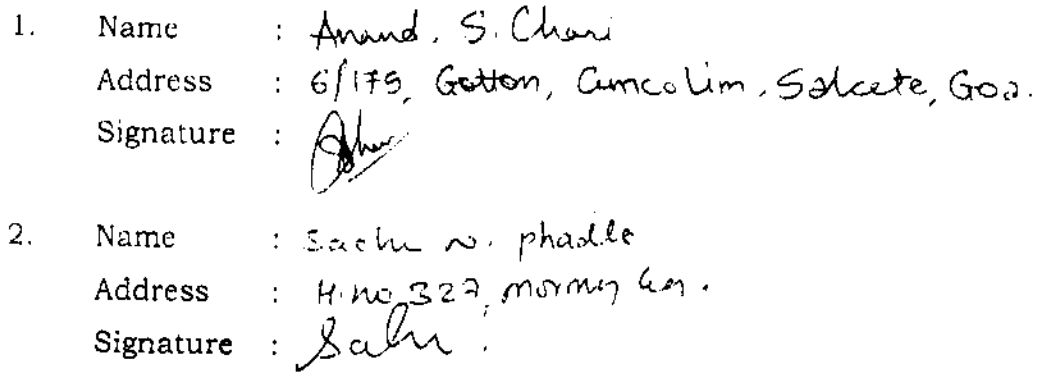 1. Name : Anand. S. Chari
Address : 6/175, Gotton, Cuncolim, Salcete, Goa.
Signature :
2. Name : Sachin N. phadte
Address : H. no 327,
Signature :